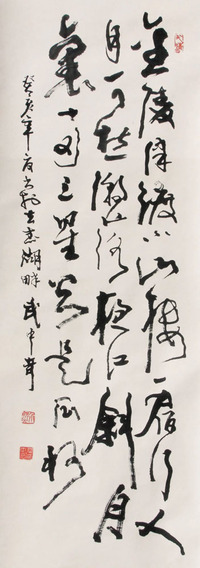 金陵津渡小山楼一宿行人
自可愁潮落夜江斜月
裏两三星火是瓜州
癸亥年夏玄武湖畔武中奇